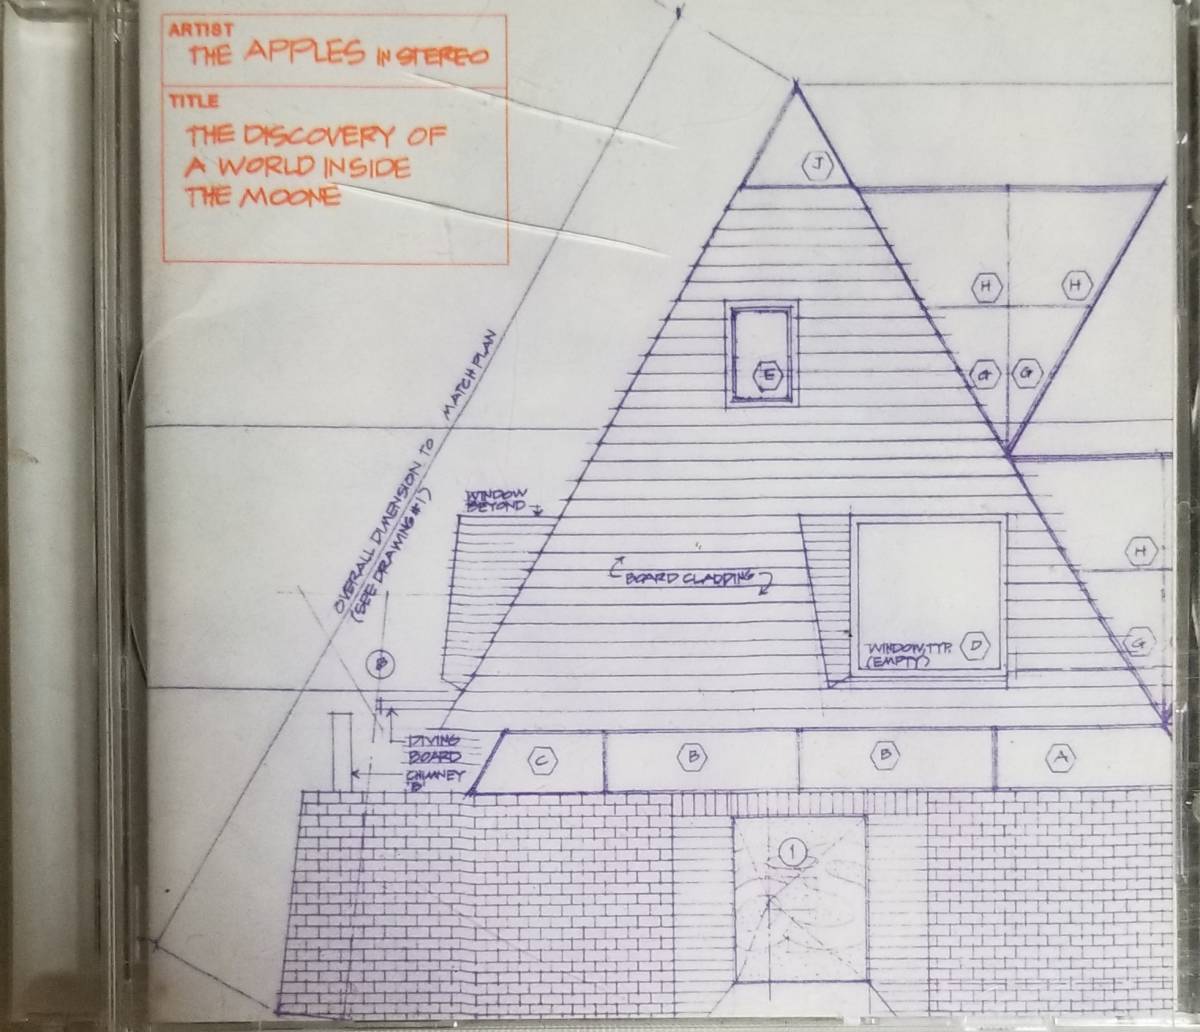 ARTIST
THE APPLES IN STEREO
TITLE
THE DISCOVERY OF
A WORLD INSIDE
THE MOONE
J
H H
E
G G
OVERALL DIMENSION TO MATCH PLAN
(SEE DRAWING #1)
WINDOW
BEYOND
BOARD CLADDING
H
WINDOW, TYP. D
(EMPTY)
G
B
DIVING
BOARD
CHIMNEY
"B"
C B B A
1